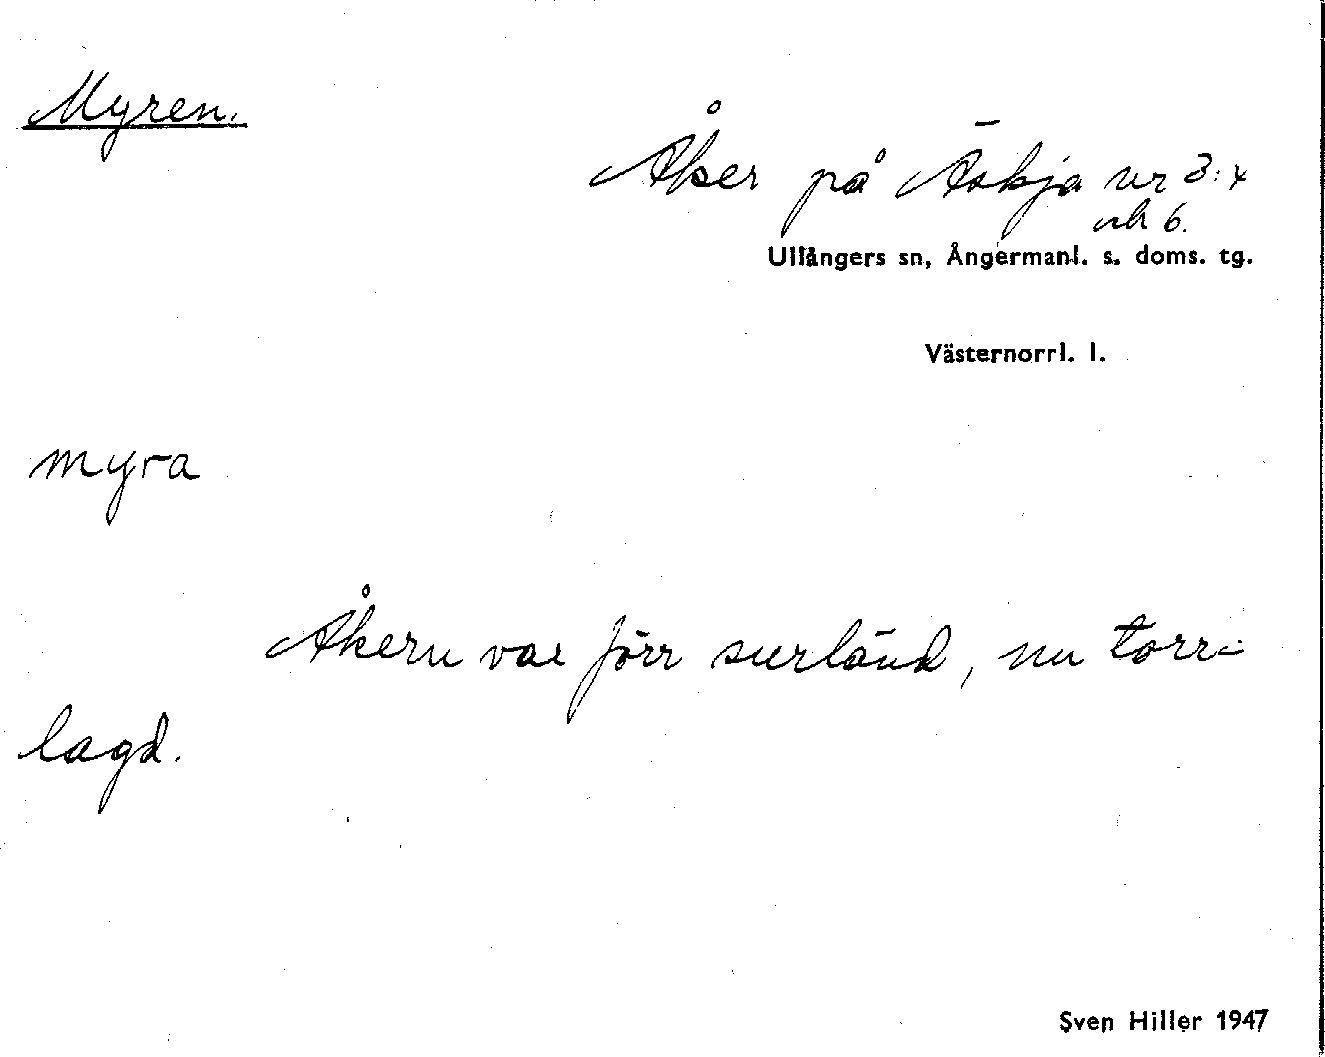 Myren.
Åker på Äskja nr 3:4
och 6.
Ullångers sn, Ångermanl. s. doms. tg.
Västernorrl. l.
myra
Åkern var förr surländ, nu torr-
lagd.
Sven Hiller 1947